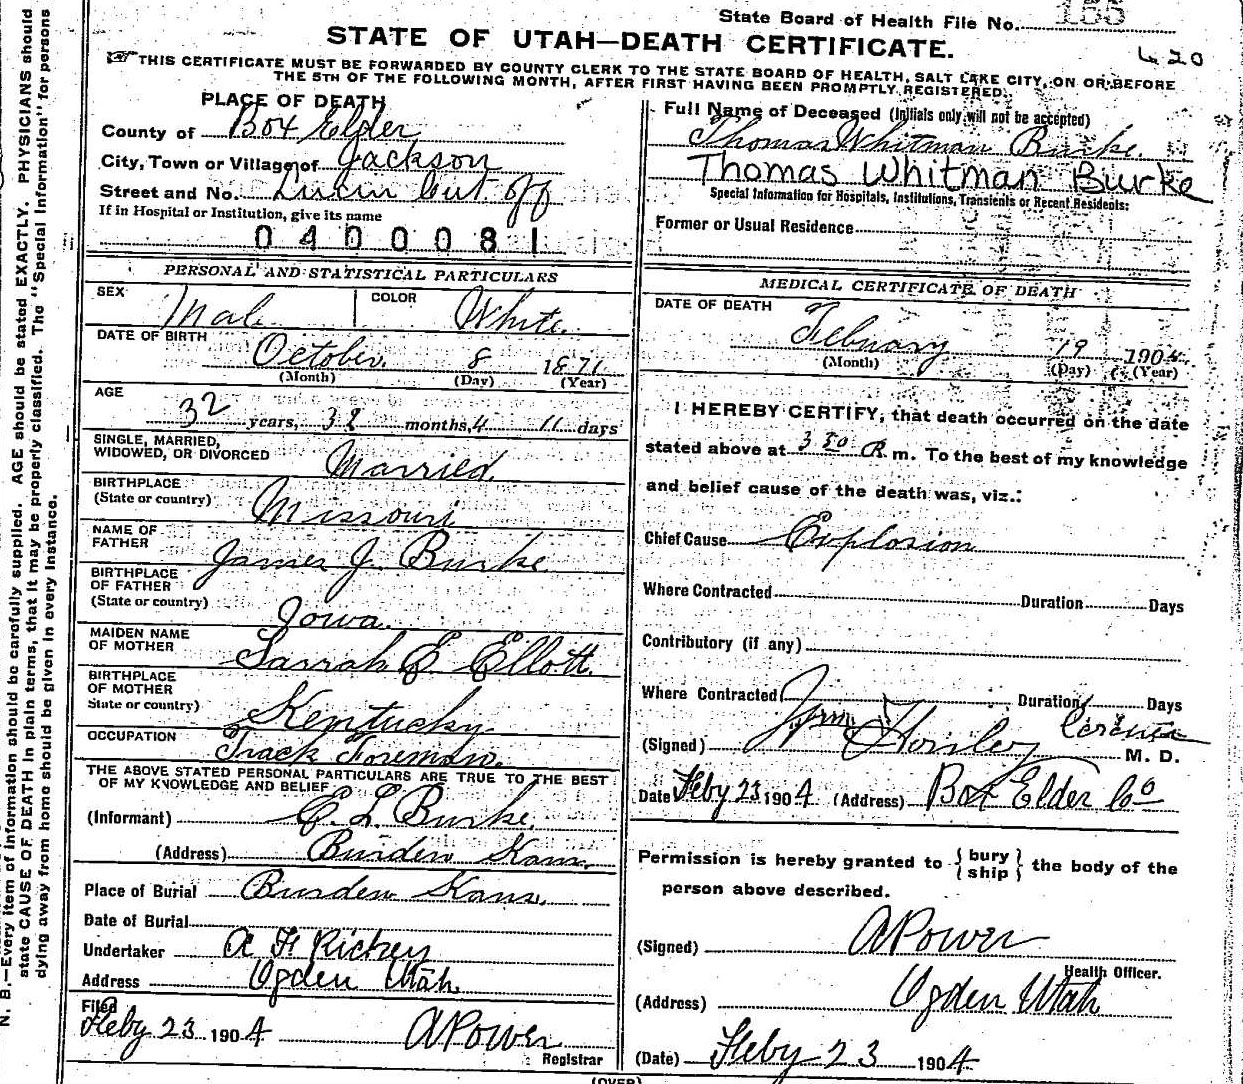 State Board of Health File No. 155
620
STATE OF UTAH—DEATH CERTIFICATE.
THIS CERTIFICATE MUST BE FORWARDED BY COUNTY CLERK TO THE STATE BOARD OF HEALTH, SALT LAKE CITY, ON OR BEFORE
THE 5TH OF THE FOLLOWING MONTH, AFTER FIRST HAVING BEEN PROMPTLY REGISTERED.
PLACE OF DEATH
County of Box Elder
City, Town or Village of Jackson
Street and No. Lucin Cut Off
If in Hospital or Institution, give its name
0400081
PERSONAL AND STATISTICAL PARTICULARS
SEX Male COLOR White
DATE OF BIRTH
October 8 1871
(Month) (Day) (Year)
AGE
32 years, 32 months, 4 11 days
SINGLE, MARRIED,
WIDOWED, OR DIVORCED Married
BIRTHPLACE
(State or country) Missouri
NAME OF
FATHER James J. Burke
BIRTHPLACE
OF FATHER
(State or country) Iowa.
MAIDEN NAME
OF MOTHER Sarrah E Ellott.
BIRTHPLACE
OF MOTHER
State or country) Kentucky
OCCUPATION Track Foreman.
THE ABOVE STATED PERSONAL PARTICULARS ARE TRUE TO THE BEST
OF MY KNOWLEDGE AND BELIEF
(Informant) E. L. Burke.
(Address) Burden Kans.
Place of Burial Burden Kans.
Date of Burial
Undertaker A F Rickey
Address Ogden Utah.
Filed
Feby 23 1904 A Power
Registrar
Full Name of Deceased (Initials only will not be accepted)
Thomas Whitman Burke.
Thomas Whitman Burke
Special Information for Hospitals, Institutions, Transients or Recent Residents:
Former or Usual Residence
MEDICAL CERTIFICATE OF DEATH
DATE OF DEATH
February 19 1904
(Month) (Day) (Year)
I HEREBY CERTIFY, that death occurred on the date
stated above at 3 50 P. m. To the best of my knowledge
and belief cause of the death was, viz.:
Chief Cause Explosion
Where Contracted Duration Days
Contributory (if any)
Where Contracted Duration Days
(Signed) Wm Horsley Coroner
M. D.
Date Feby 23 1904 (Address) Box Elder Co
Permission is hereby granted to { bury
ship } the body of the
person above described.
(Signed) A Power
Health Officer.
(Address) Ogden Utah
(Date) Feby 23 1904
(OVER)
N. B.—Every item of information should be carefully supplied. AGE should be stated EXACTLY. PHYSICIANS should
state CAUSE OF DEATH in plain terms, that it may be properly classified. The "Special Information" for persons
dying away from home should be given in every instance.